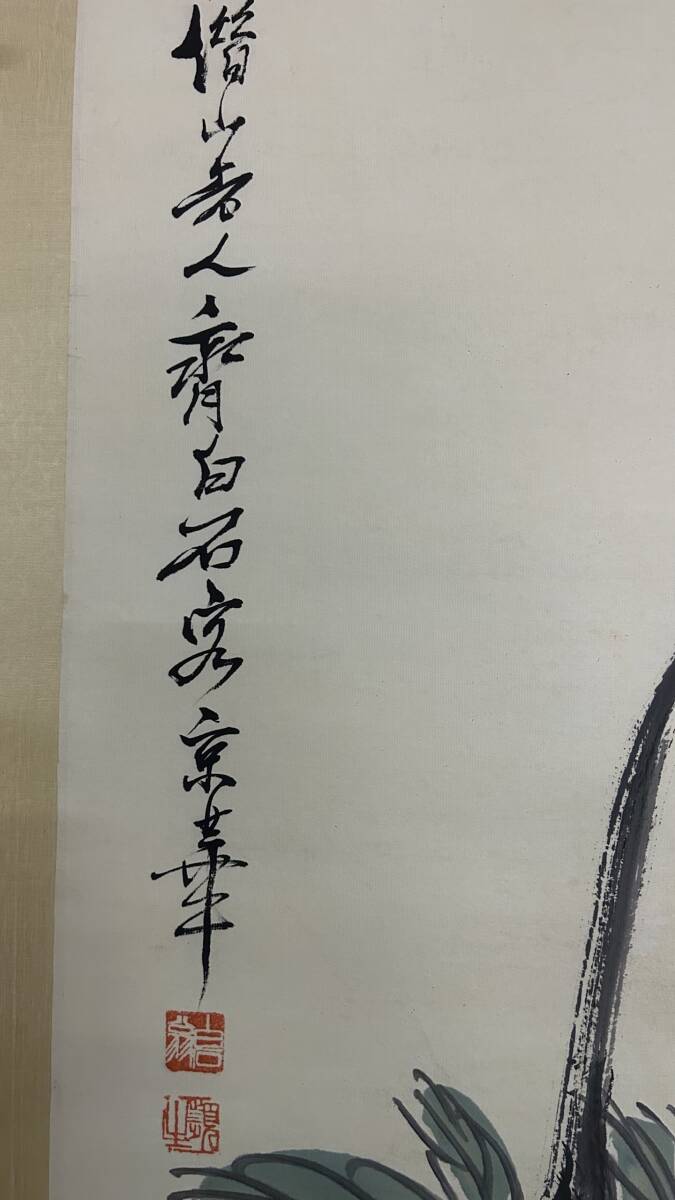 借山老人齊白石客京華